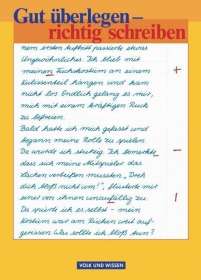 Gut überlegen –
richtig schreiben
nem ersten Auftritt passierte etwas
Ungewöhnliches. Ich blieb mit
meinen Fuchskostüm an einem
Kulissenteil hängen und kam
nicht los. Endlich gelang es mir,
mich mit einem kräftigen Ruck
zu befreien.
Bald hatte ich mich gefasst und
begann meine Rolle zu spielen.
Da wurde ich stutzig. Ich bemerkte,
dass sich meine Mitspieler das
Lachen verbeißen mussten. „Dreh
dich bloß nicht um!", flüsterte mir
einer von ihnen unauffällig zu.
Da spürte ich es selbst – mein
Kostüm war am Rücken weit auf-
gerissen. Was sollte ich bloß tun?
+
–
!
VOLK UND WISSEN